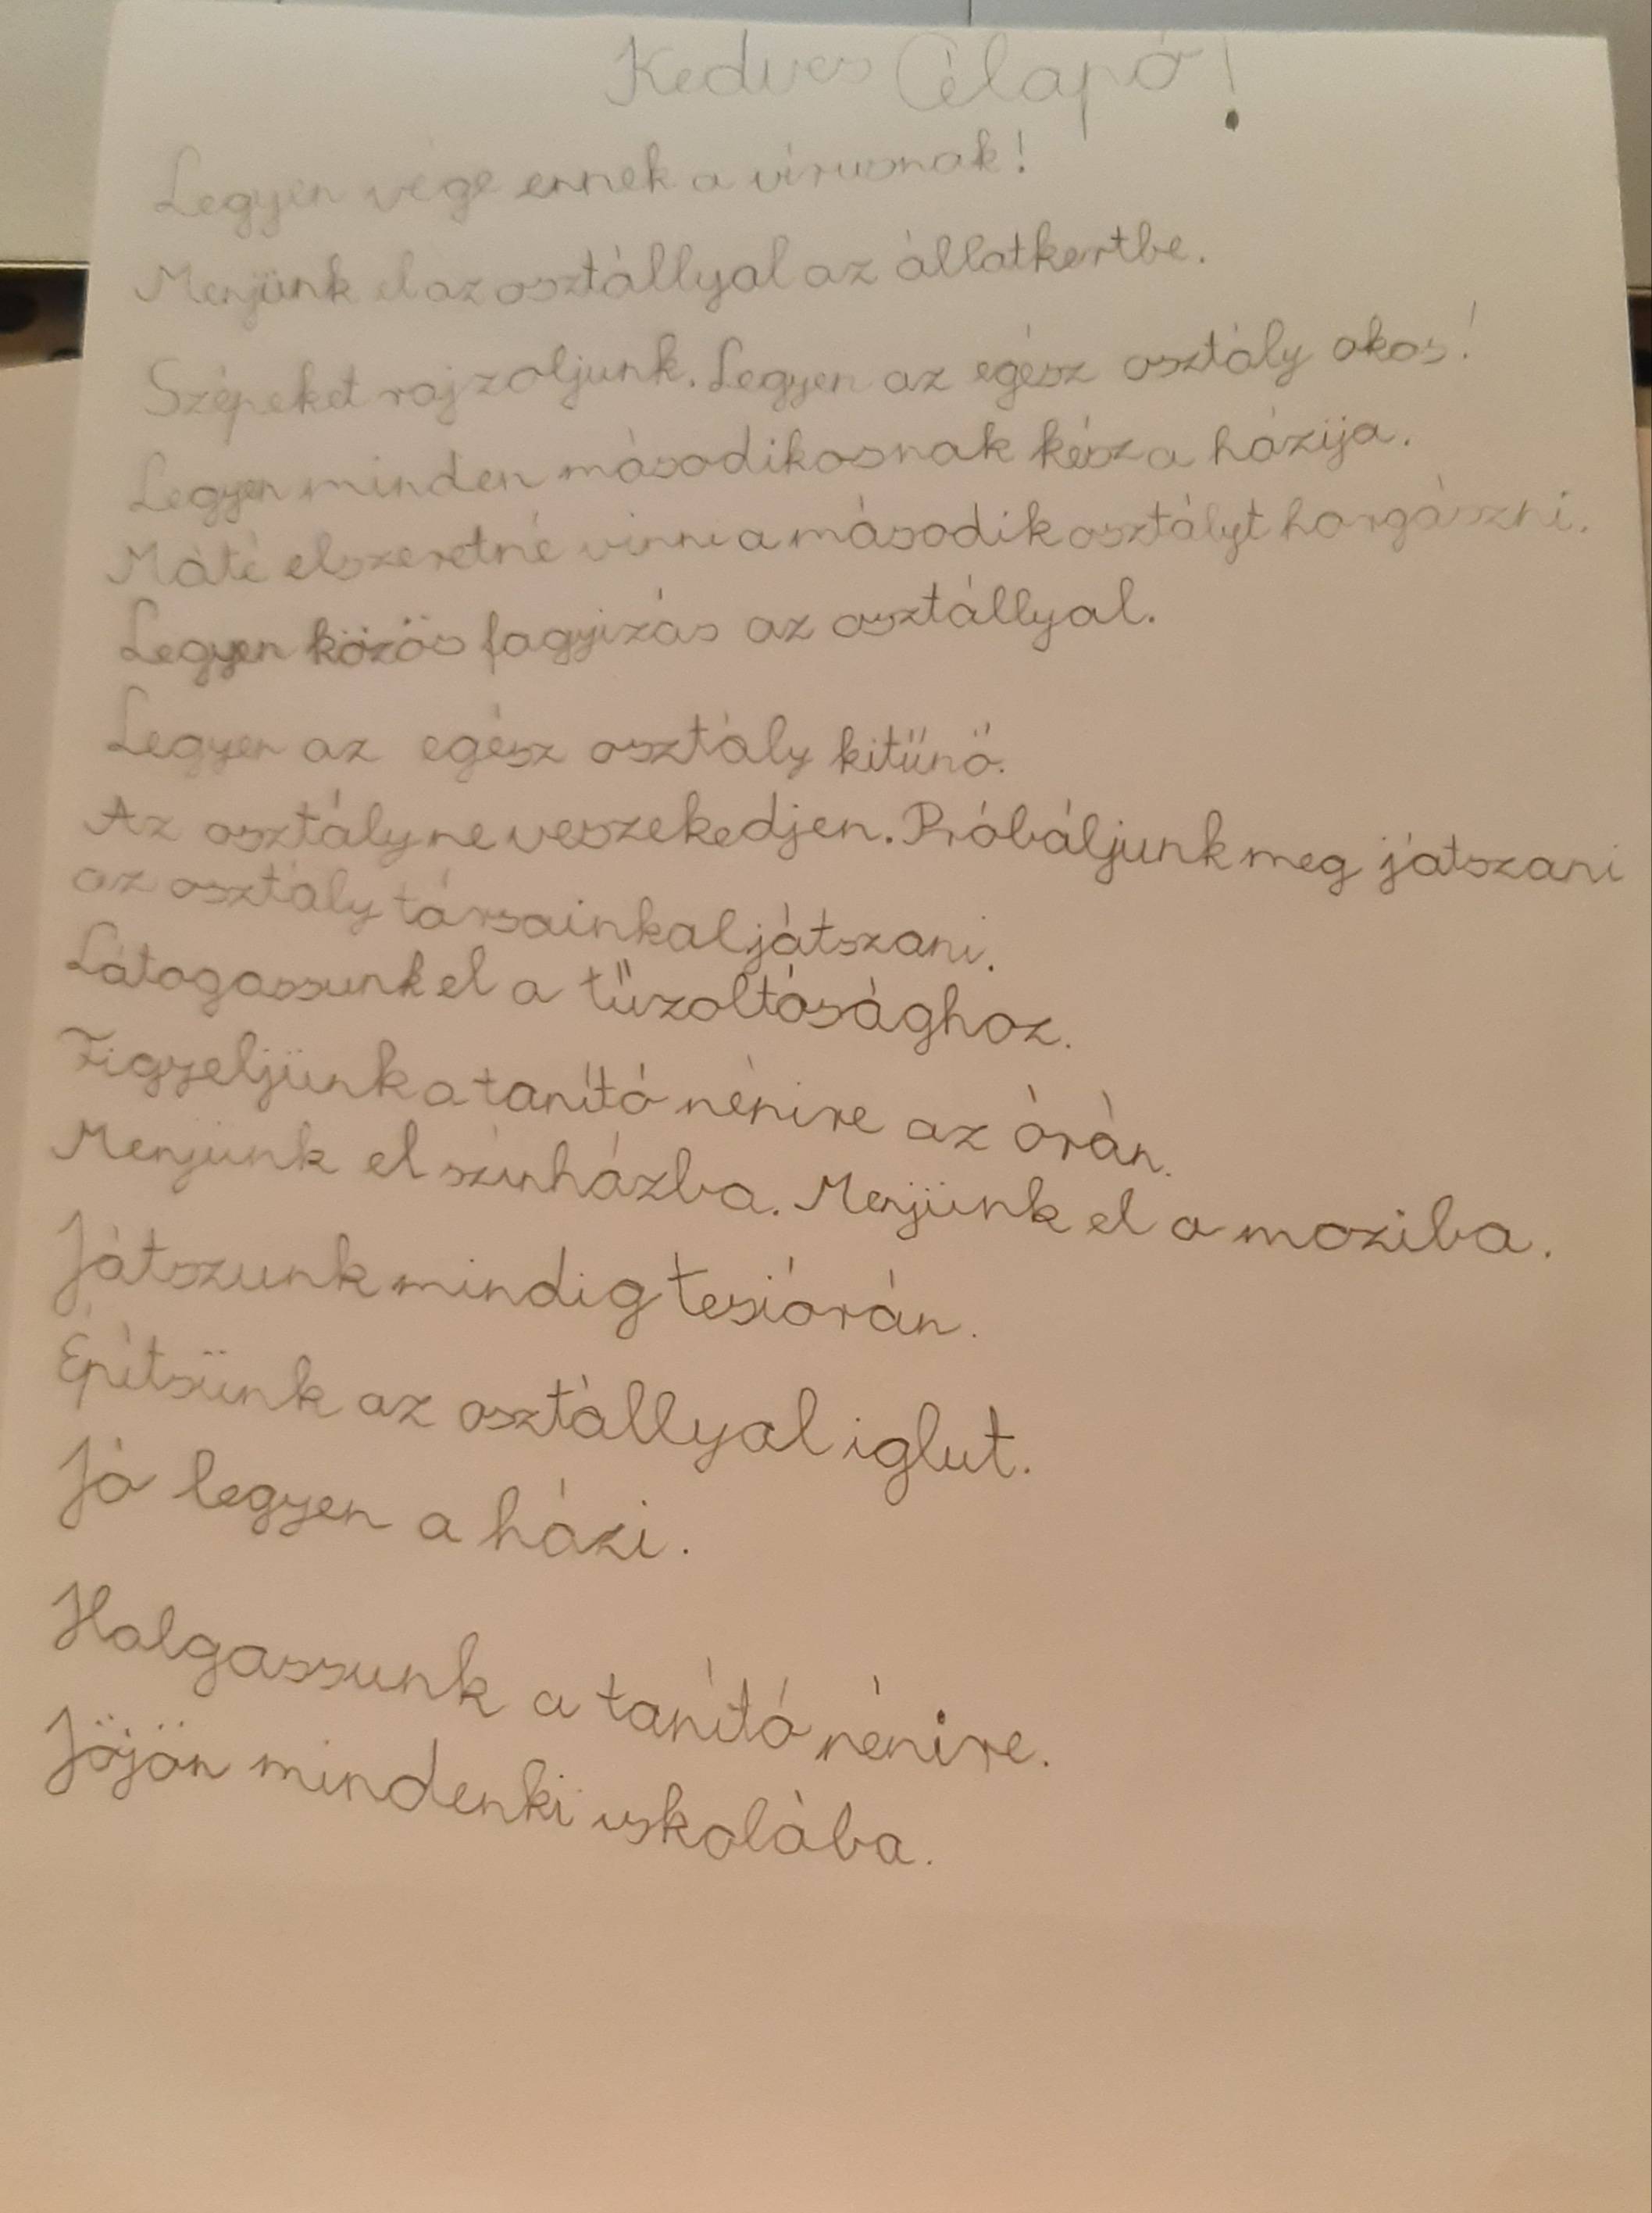 Kedves Télapó!
Legyen vége ennek a vírusnak!
Menjünk el az osztállyal az állatkertbe.
Szépeket rajzoljunk. Legyen az egész osztály okos!
Legyen minden másodikosnak kész a házija.
Máté elszeretné vinni a második osztályt horgászni.
Legyen közös fagyizás az osztállyal.
Legyen az egész osztály kitűnő.
Az osztály ne veszekedjen. Próbáljunk meg játszani
az osztály társainkal játszani.
Látogassunk el a tűzoltósághoz.
Figyeljünk a tanító nénire az órán.
Menjünk el színházba. Menjünk el a moziba.
Játszunk mindig tesiórán.
Építsünk az osztállyal iglut.
Jó legyen a házi.
Halgassunk a tanító nénire.
Jöjön mindenki iskolába.